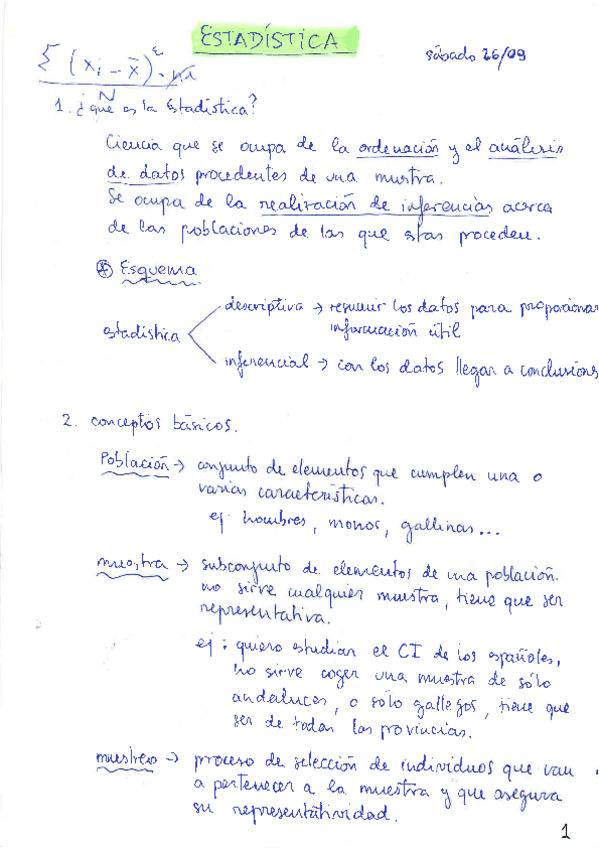 ESTADÍSTICA
sábado 26/09
Σ (xi - x̄)² · ni
N
1. ¿qué es la Estadística?
Ciencia que se ocupa de la ordenación y el análisis
de datos procedentes de una muestra.
Se ocupa de la realización de inferencias acerca
de las poblaciones de las que estas proceden.
* Esquema
descriptiva → resumir los datos para proporcionar
información útil
estadística
inferencial → con los datos llegar a conclusiones
2. conceptos básicos.
Población → conjunto de elementos que cumplen una o
varias características.
ej hombres, monos, gallinas...
muestra → subconjunto de elementos de una población.
no sirve cualquier muestra, tiene que ser
representativa.
ej: quiero estudiar el CI de los españoles,
no sirve coger una muestra de sólo
andaluces, o solo gallegos, tiene que
ser de todas las provincias.
muestreo → proceso de selección de individuos que van
a pertenecer a la muestra y que asegura
su representatividad.
1